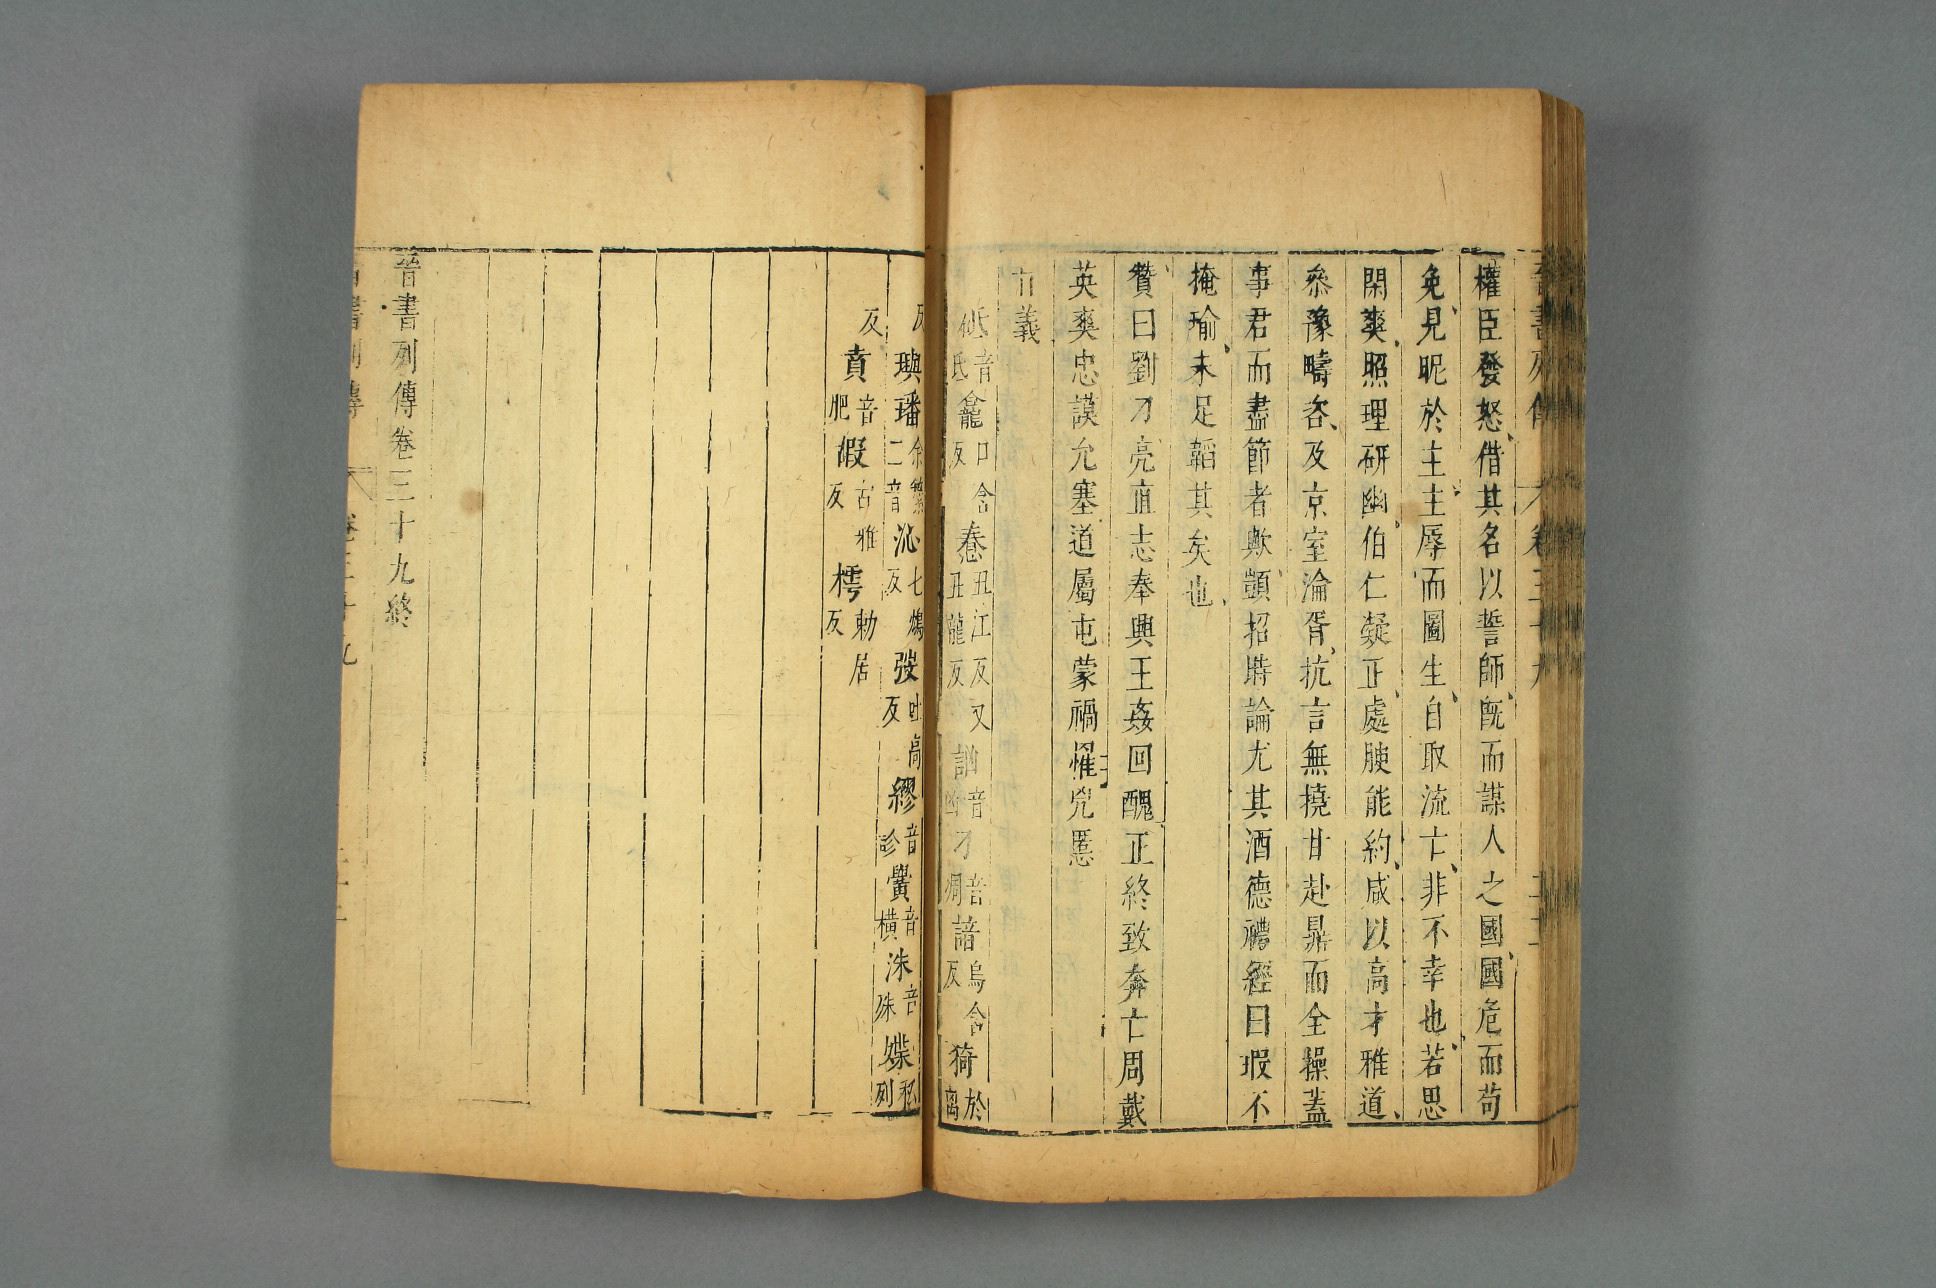 權臣發怒借其名以誓師旣而謀人之國國危而苟
免見昵於主主辱而圖生自取流亡非不幸也若思
閑爽照理研幽伯仁凝正處腴能約咸以高才雅道
叅豫疇咨及京室淪胥抗言無撓甘赴鼎而全操蓋
事君而盡節者歟顗招時論尤其酒德禮經曰瑕不
掩瑜未足韜其美也
贊曰劉刁亮直志奉興王姦回醜正終致奔亡周戴
英爽忠謨允塞道屬屯蒙禍罹兇慝
音義
砥音氐龕口含反惷丑江反又丑龍反訕音 刁音凋諳烏含反猗於离
反璵璠余繁二音沁七鴆反弢吐高反繆音 黌音橫洙音殊媟私列
反賁音肥嘏古雅反樗勅居反
晉書列傳卷三十九終
晉書列傳 卷三十九